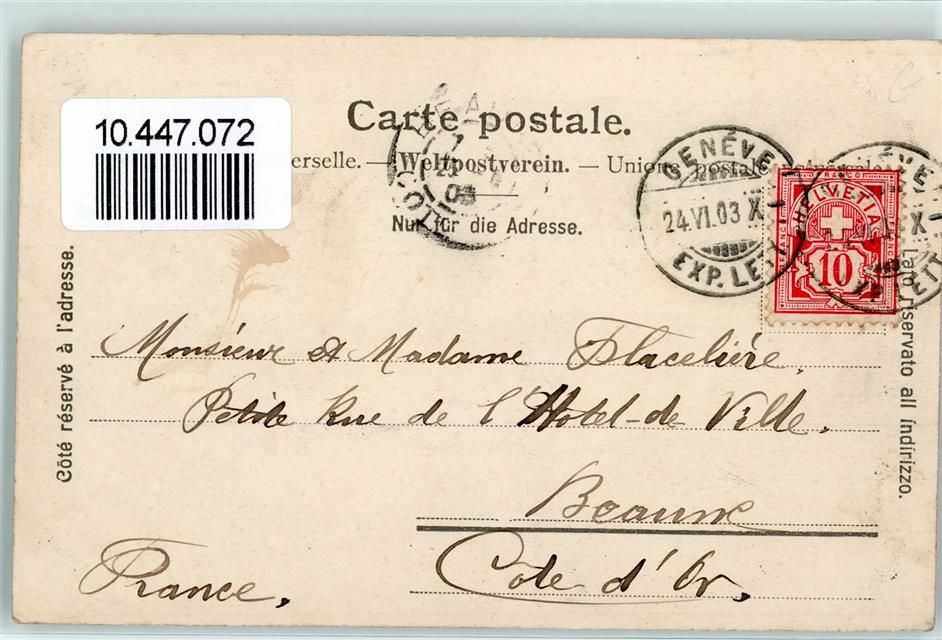 Carte postale.
10.447.072
erselle. — Weltpostverein. — Union postale
Nur für die Adresse.
GENÈVE
24.VI.03 X
EXP. LETT
FRANCO
HELVETIA
10
Côté réservé à l'adresse.
Lato riservato all indirizzo.
Monsieur et Madame Flacelière,
Petite Rue de l'Hotel-de-Ville.
Beaune
Côte d'Or,
France,